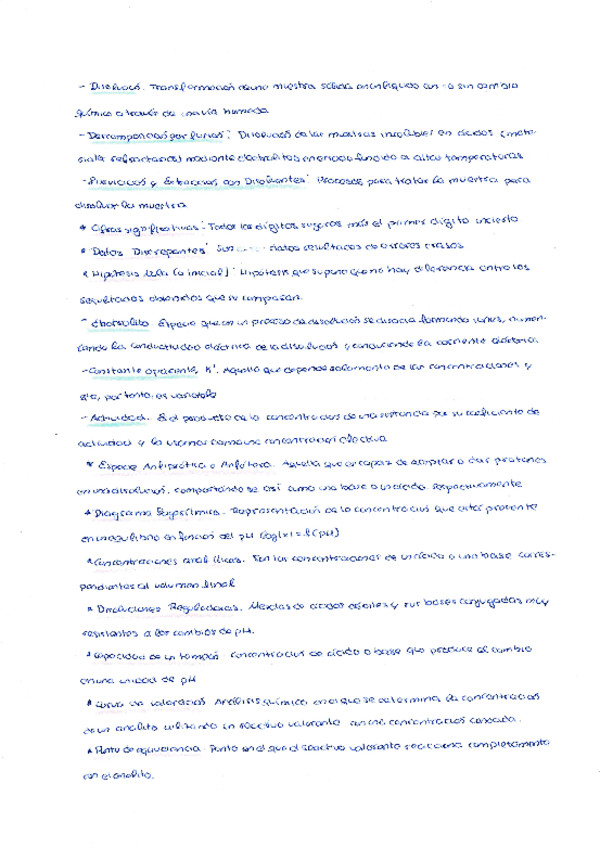 - Disolución. Transformación de una muestra sólida en un líquido con o sin cambio
químico a través de una vía húmeda
- Descomposición por fusión: Disolución de las muestras insolubles en ácidos (mate-
riales refractarios) mediante electrolitos en estado fundido a altas temperaturas
- Extracción con Disolventes: Procesos para tratar la muestra para
disolver la muestra
* Cifras significativas: Todos los dígitos seguros más el primer dígito incierto
* Datos Discrepantes: Son datos resultados de errores crasos
* Hipótesis nula (o inicial): Hipótesis que supone que no hay diferencia entre los
resultados obtenidos que se comparan
- Electrolito. Especie que en un proceso de disolución se disocia formando iones, aumen-
tando la conductividad eléctrica de la disolución y conduciendo la corriente eléctrica
- Constante aparente, K'. Aquella que depende solamente de las concentraciones y
ésta, por tanto, es variable
- Actividad. Es el producto de la concentración de una sustancia por su coeficiente de
actividad y la llamamos concentración efectiva
* Especie Anfiprótica o Anfótera. Aquella que es capaz de aceptar o dar protones
en una disolución, comportándose así como una base o un ácido respectivamente
* Diagrama logarítmico. Representación de la concentración que está presente
en un equilibrio en función del pH log|x| = f(pH)
* Concentraciones analíticas. Son las concentraciones de un ácido o una base corres-
pondientes al volumen final
* Disoluciones Reguladoras. Mezclas de ácidos débiles y sus bases conjugadas muy
resistentes a los cambios de pH.
* Capacidad de un tampón concentración de ácido o base que produce el cambio
en una unidad de pH
* Curva de valoración Análisis químico en el que se determina la concentración
de un analito utilizando un reactivo valorante con concentración conocida.
* Punto de equivalencia. Punto en el que el reactivo valorante reacciona completamente
con el analito.